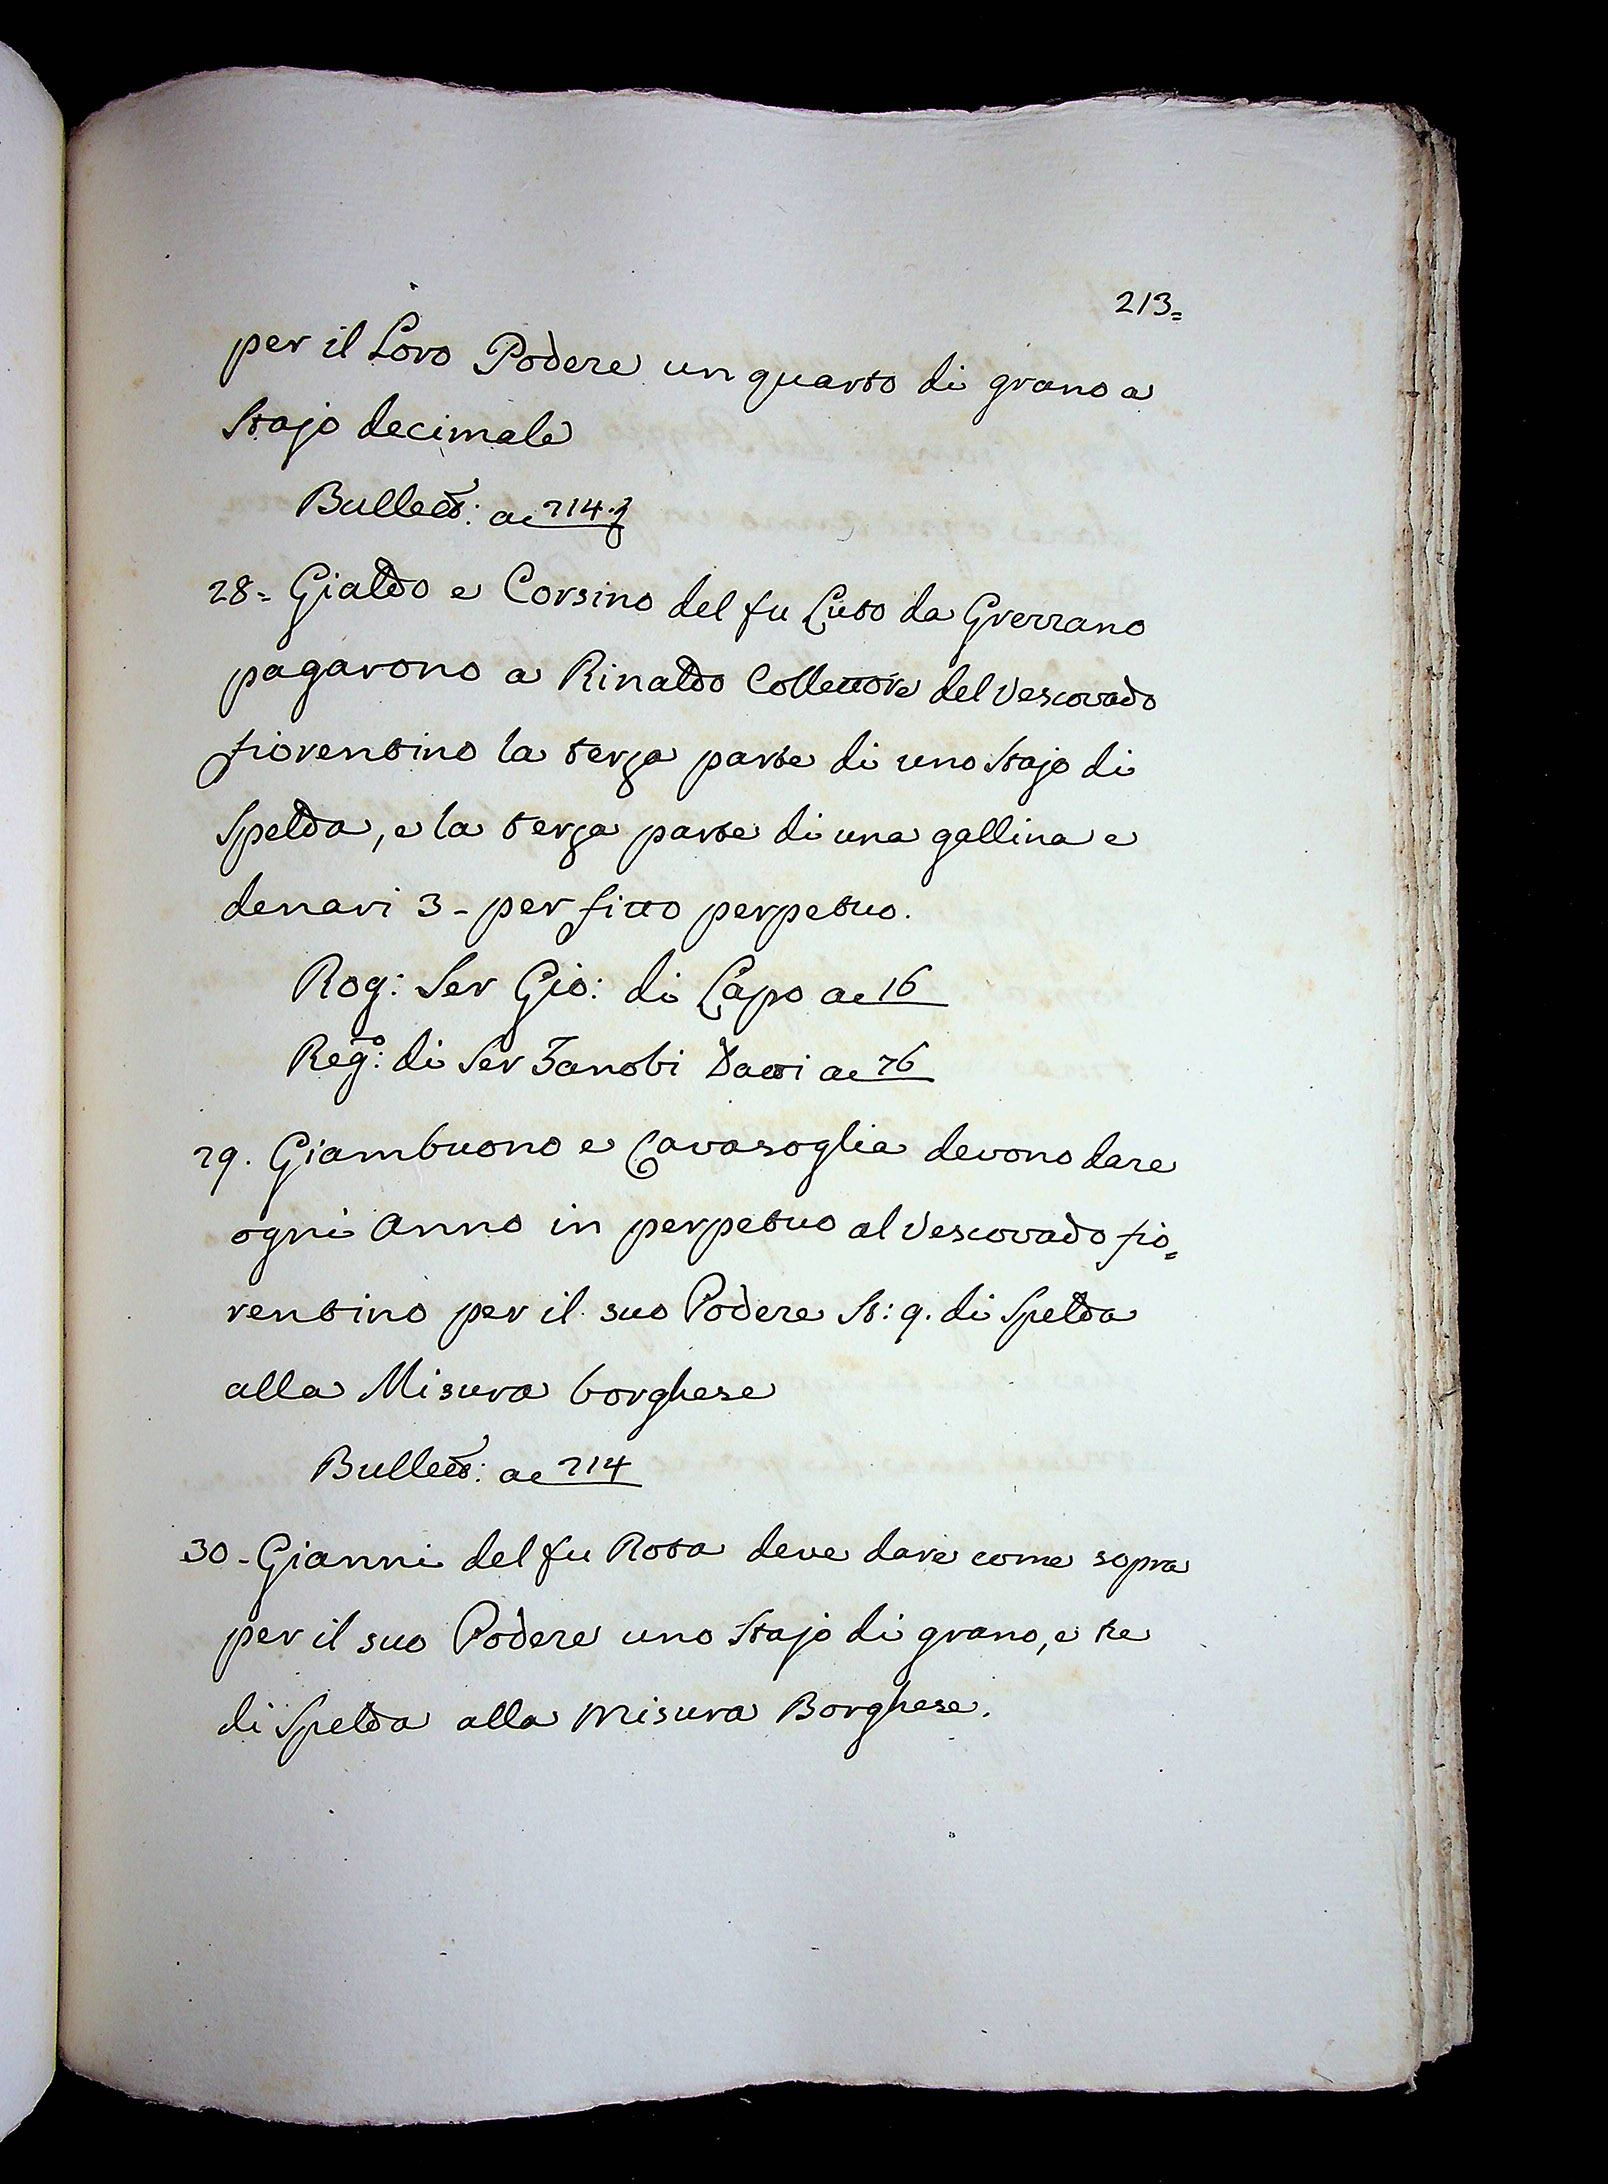 213=
per il Loro Podere un quarto di grano a
Stajo decimale
Bullett: ac 214.
28= Gialdo e Corsino del fu Luto da Grezzano
pagarono a Rinaldo Collettore del Vescovado
fiorentino la terza parte di uno Stajo di
Spelda, e la terza parte di una gallina e
denari 3 - per fitto perpetuo.
Rog: Ser Gio: di Lapo ac 16
Reg:º di Ser Zanobi Datti ac 76
29. Giambuono e Cavasoglia devono dare
ogni Anno in perpetuo al Vescovado fio=
rentino per il suo Podere St: 9. di Spelda
alla Misura borghese
Bullett: ac 214
30 - Gianni del fu Rota deve dare come sopra
per il suo Podere uno Stajo di grano, e tre
di Spelda alla misura Borghese.